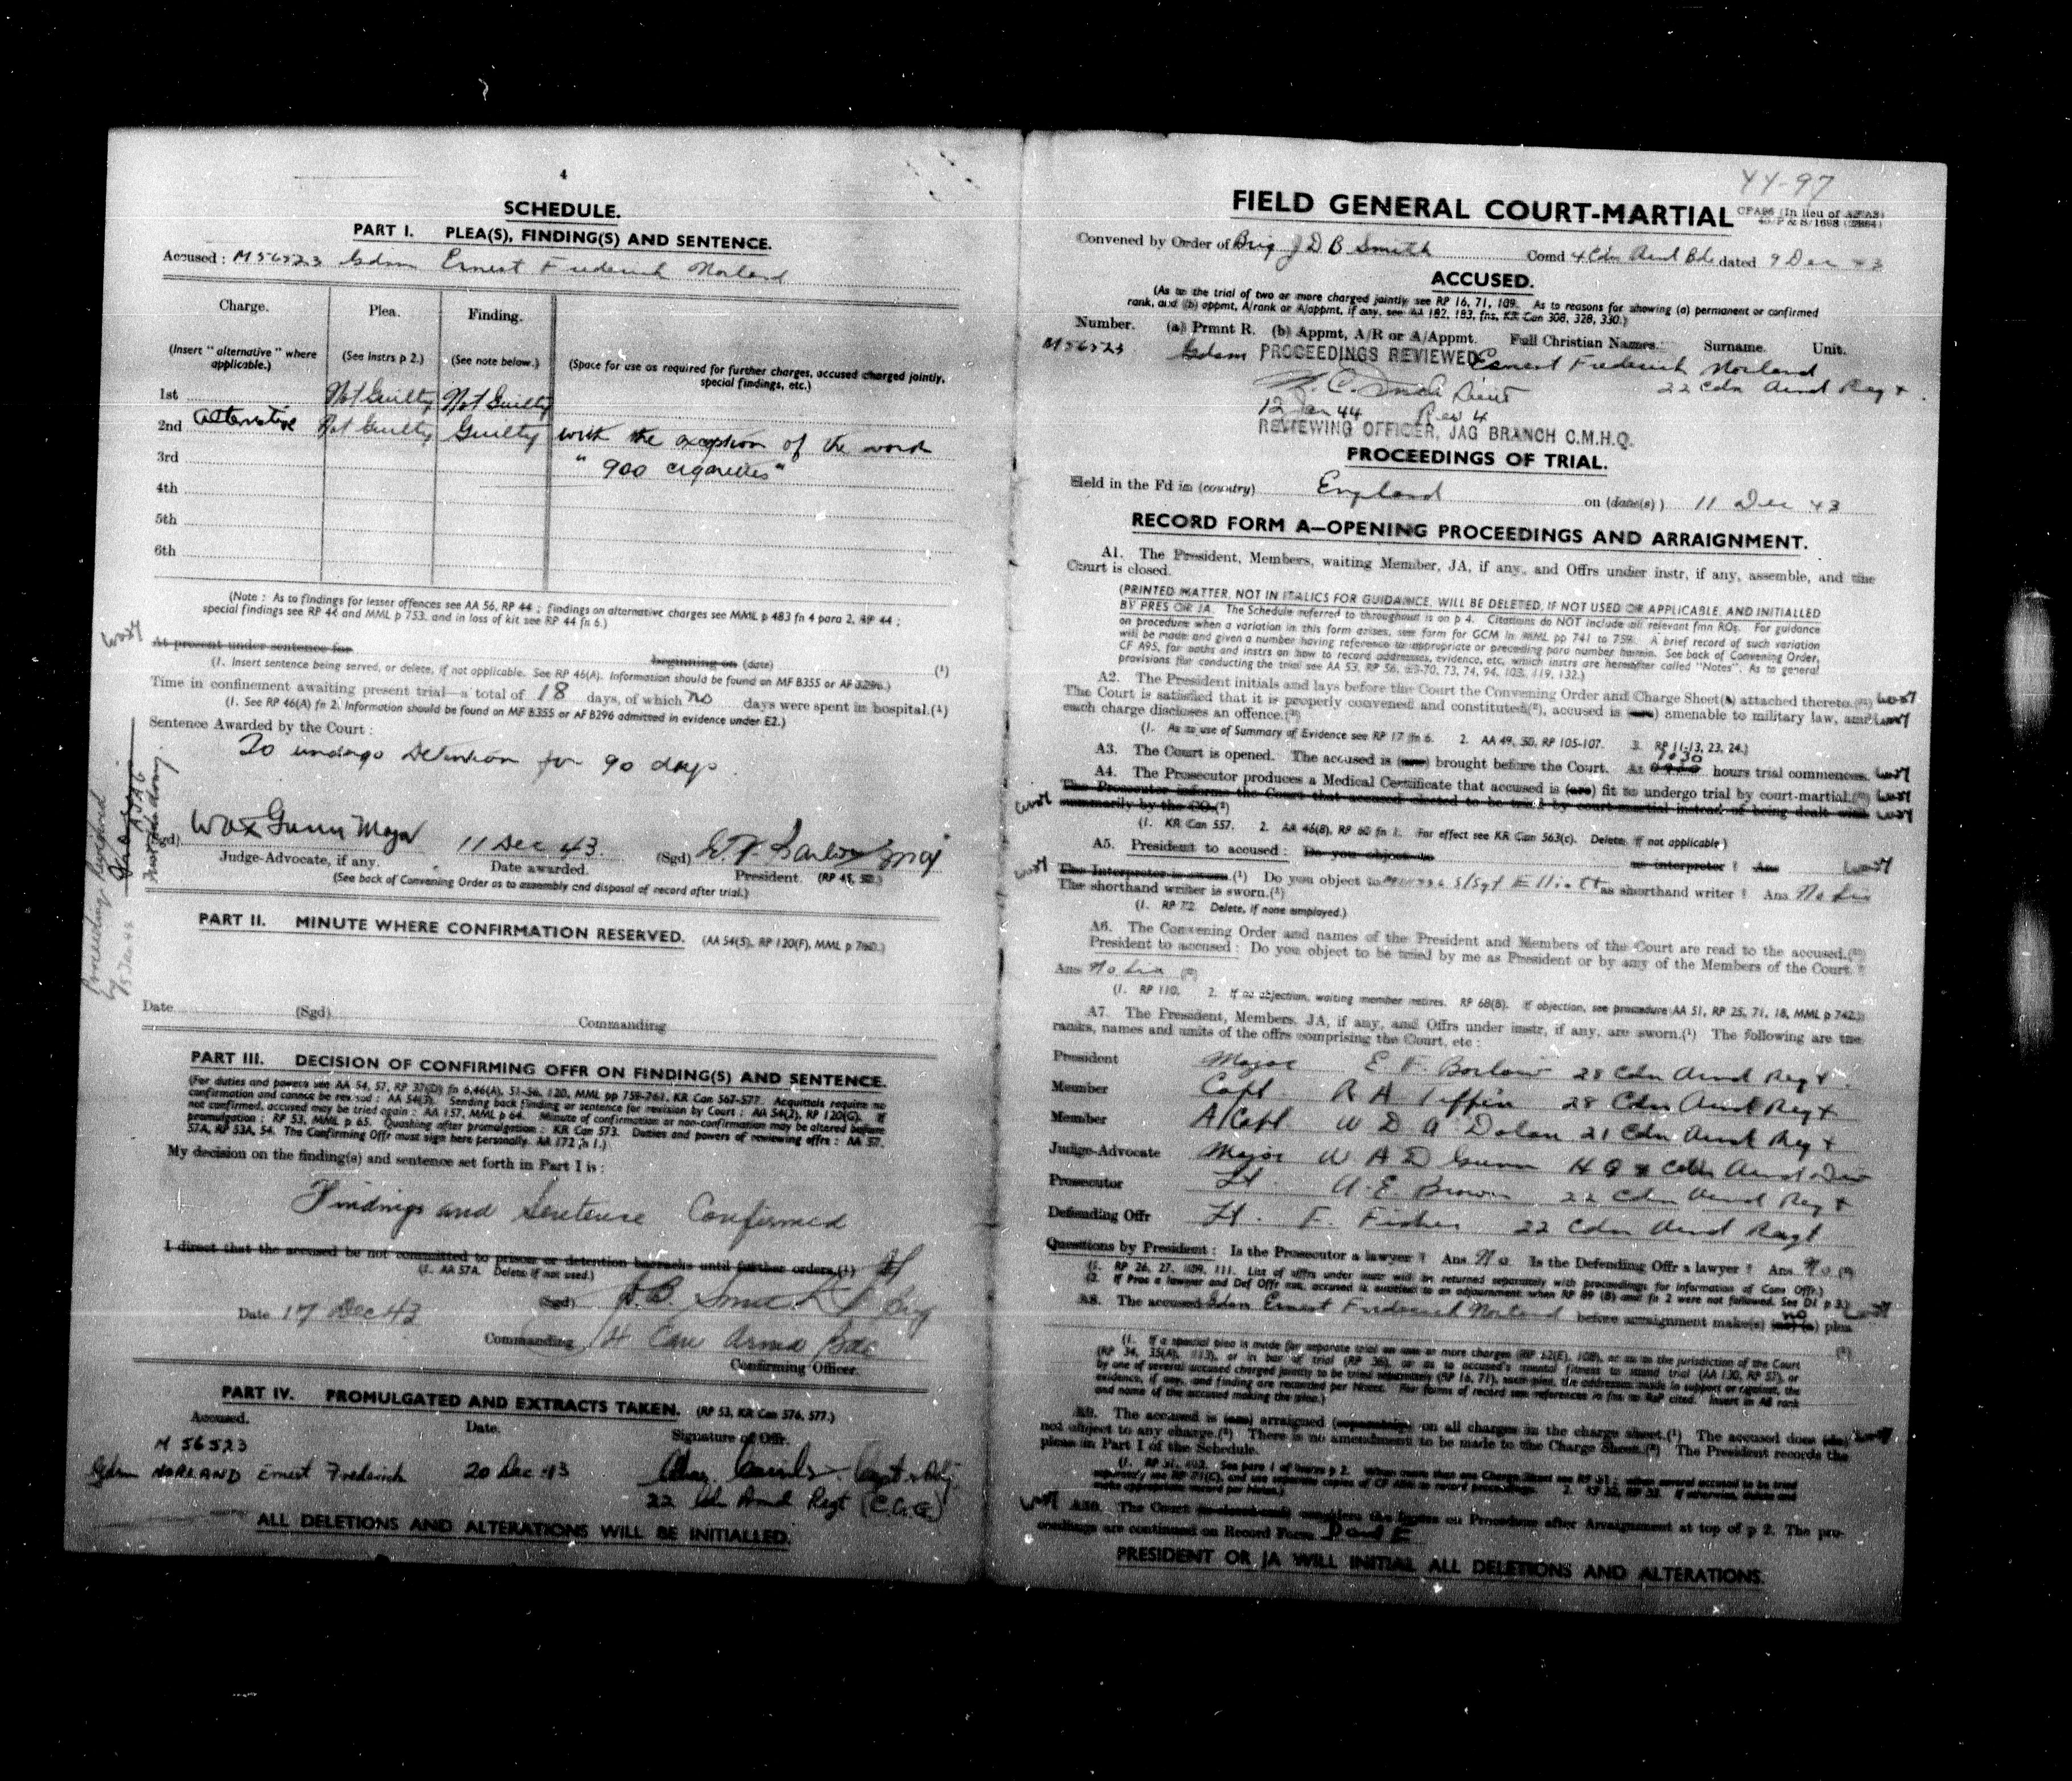 4
SCHEDULE.
PART I. PLEA(S), FINDING(S) AND SENTENCE.
Accused: M56523 Gdsm Ernest Frederick Norland
Charge. Plea. Finding.
(Insert "alternative" where applicable.) (See instrs p 2.) (See note below.) (Space for use as required for further charges, accused charged jointly, special findings, etc.)
1st Not Guilty Not Guilty
2nd Alternative Not Guilty Guilty with the exception of the words
3rd "900 cigarettes"
4th
5th
6th
(Note: As to findings for lesser offences see AA 56, RP 44; findings on alternative charges see MML p 483 fn 4 para 2, RP 44;
special findings see RP 44 and MML p 753, and in loss of kit see RP 44 fn 6.)
At present under sentence for beginning on (date) (1)
(1. Insert sentence being served, or delete, if not applicable. See RP 46(A). Information should be found on MF B355 or AF B296.)
Time in confinement awaiting present trial—a total of 18 days, of which no days were spent in hospital.(1)
(1. See RP 46(A) fn 2. Information should be found on MF B355 or AF B296 admitted in evidence under E2.)
Sentence Awarded by the Court:
To undergo Detention for 90 days.
(Sgd) W A D Gunn Major 11 Dec 43 (Sgd) E. F. Barlow Maj
Judge-Advocate, if any. Date awarded. President. (RP 45, 50.)
(See back of Convening Order as to assembly and disposal of record after trial.)
PART II. MINUTE WHERE CONFIRMATION RESERVED. (AA 54(5), RP 120(F), MML p 760.)
Date (Sgd) Commanding
PART III. DECISION OF CONFIRMING OFFR ON FINDING(S) AND SENTENCE.
(For duties and powers see AA 54, 57, RP 37(D) fn 6, 46(A), 51-56, 120, MML pp 759-761, KR Can 567-577. Acquittals require no
confirmation and cannot be revised: AA 54(3). Sending back finding or sentence for revision by Court: AA 54(2), RP 120(G). If
not confirmed, accused may be tried again: AA 157, MML p 64. Minute of confirmation or non-confirmation may be altered before
promulgation: RP 53, MML p 65. Quashing after promulgation: KR Can 573. Duties and powers of reviewing offrs: AA 57,
57A, RP 53A, 54. The Confirming Offr must sign here personally. AA 172 fn 1.)
My decision on the finding(s) and sentence set forth in Part I is:
Findings and Sentence Confirmed
I direct that the accused be not committed to prison or detention barracks until further orders.(1)
(1. AA 57A. Delete if not used.)
Date 17 Dec 43 (Sgd) J.D.B. Smith Brig
Commanding 4 Can Armd Bde
Confirming Officer.
PART IV. PROMULGATED AND EXTRACTS TAKEN. (RP 53, KR Can 576, 577.)
Accused. Date. Signature of Offr.
M 56523
Gdsm NORLAND Ernest Frederick 20 Dec 43 Capt & Adj
22 Cdn Armd Regt (C.G.G.)
ALL DELETIONS AND ALTERATIONS WILL BE INITIALLED.
44-97
FIELD GENERAL COURT-MARTIAL
Convened by Order of Brig J D B Smith Comd 4 Cdn Armd Bde dated 9 Dec 43
ACCUSED.
(As to the trial of two or more charged jointly see RP 16, 71, 109. As to reasons for showing (a) permanent or confirmed
rank, and (b) appmt, A/rank or A/appmt, if any, see AA 182, 183, fns, KR Can 308, 328, 330.)
Number. (a) Prmnt R. (b) Appmt, A/R or A/Appmt. Full Christian Names. Surname. Unit.
M56523 Gdsm PROCEEDINGS REVIEWED Ernest Frederick Norland
22 Cdn Armd Regt
12 Jan 44 Rev 4
REVIEWING OFFICER, JAG BRANCH C.M.H.Q.
PROCEEDINGS OF TRIAL.
Held in the Fd in (country) England on (date(s)) 11 Dec 43
RECORD FORM A—OPENING PROCEEDINGS AND ARRAIGNMENT.
A1. The President, Members, waiting Member, JA, if any, and Offrs under instr, if any, assemble, and the
Court is closed.
(PRINTED MATTER, NOT IN ITALICS FOR GUIDANCE, WILL BE DELETED, IF NOT USED OR APPLICABLE, AND INITIALLED
BY PRES OR JA. The Schedule referred to throughout is on p 4. Citations do NOT include all relevant fmn ROs. For guidance
on procedure when a variation in this form arises, see form for GCM in MML pp 741 to 759. A brief record of such variation
will be made and given a number having reference to appropriate or preceding para number herein. See back of Convening Order,
CF A95, for oaths and instrs on how to record addresses, evidence, etc, which instrs are hereafter called "Notes". As to general
provisions for conducting the trial see AA 53, RP 56, 63-70, 73, 74, 94, 103, 119, 132.)
A2. The President initials and lays before the Court the Convening Order and Charge Sheet(s) attached thereto.
The Court is satisfied that it is properly convened and constituted(2), accused is (are) amenable to military law, and
each charge discloses an offence.(3)
(1. As to use of Summary of Evidence see RP 17 fn 6. 2. AA 49, 50, RP 105-107. 3. RP 11-13, 23, 24.)
A3. The Court is opened. The accused is (are) brought before the Court. At 1030 hours trial commences.
A4. The Prosecutor produces a Medical Certificate that accused is (are) fit to undergo trial by court-martial.(1)
The Prosecutor informs the Court that accused elected to be tried by court-martial instead of being dealt with
summarily by the CO.(2)
(1. KR Can 557. 2. AA 46(8), RP 60 fn 1. For effect see KR Can 563(c). Delete if not applicable)
A5. President to accused: Do you object to as interpreter? Ans
The Interpreter is sworn.(1) Do you object to S/Sgt Elliott as shorthand writer? Ans No Sir
The shorthand writer is sworn.(1)
(1. RP 72. Delete, if none employed.)
A6. The Convening Order and names of the President and Members of the Court are read to the accused.(1)
President to accused: Do you object to be tried by me as President or by any of the Members of the Court?
Ans No Sir (2)
(1. RP 110. 2. If no objection, waiting member retires. RP 68(B). If objection, see procedure AA 51, RP 25, 71, 18, MML p 742.)
A7. The President, Members, JA, if any, and Offrs under instr, if any, are sworn.(1) The following are the
ranks, names and units of the offrs comprising the Court, etc:
President Major E F Barlow 28 Cdn Armd Regt.
Member Capt. R A Tiffin 28 Cdn Armd Regt
Member A/Capt. W D A Dolan 21 Cdn Armd Regt
Judge-Advocate Major W A D Gunn HQ 4 Cdn Armd Div
Prosecutor Lt. A. E. Brown 22 Cdn Armd Regt
Defending Offr Lt. F. Fisher 22 Cdn Armd Regt
Questions by President: Is the Prosecutor a lawyer? Ans No. Is the Defending Offr a lawyer? Ans No (2)
(1. RP 26, 27, 109, 111. List of offrs under instr will be returned separately with proceedings for information of Conv Offr.)
(2. If Pros a lawyer and Def Offr not, accused is entitled to an adjournment when RP 89 (B) and fn 2 were not followed. See D1 p 3.)
A8. The accused Gdsm Ernest Frederick Norland before arraignment make(s) no plea
A9. The accused is (are) arraigned (separately) on all charges in the charge sheet.(1) The accused does (do)
not object to any charge.(2) There is no amendment to be made to the Charge Sheet.(2) The President records the
pleas in Part I of the Schedule.
A10. The Court considers the Instrs on Procedure after Arraignment at top of p 2. The pro-
ceedings are continued on Record Form D and E
PRESIDENT OR JA WILL INITIAL ALL DELETIONS AND ALTERATIONS.